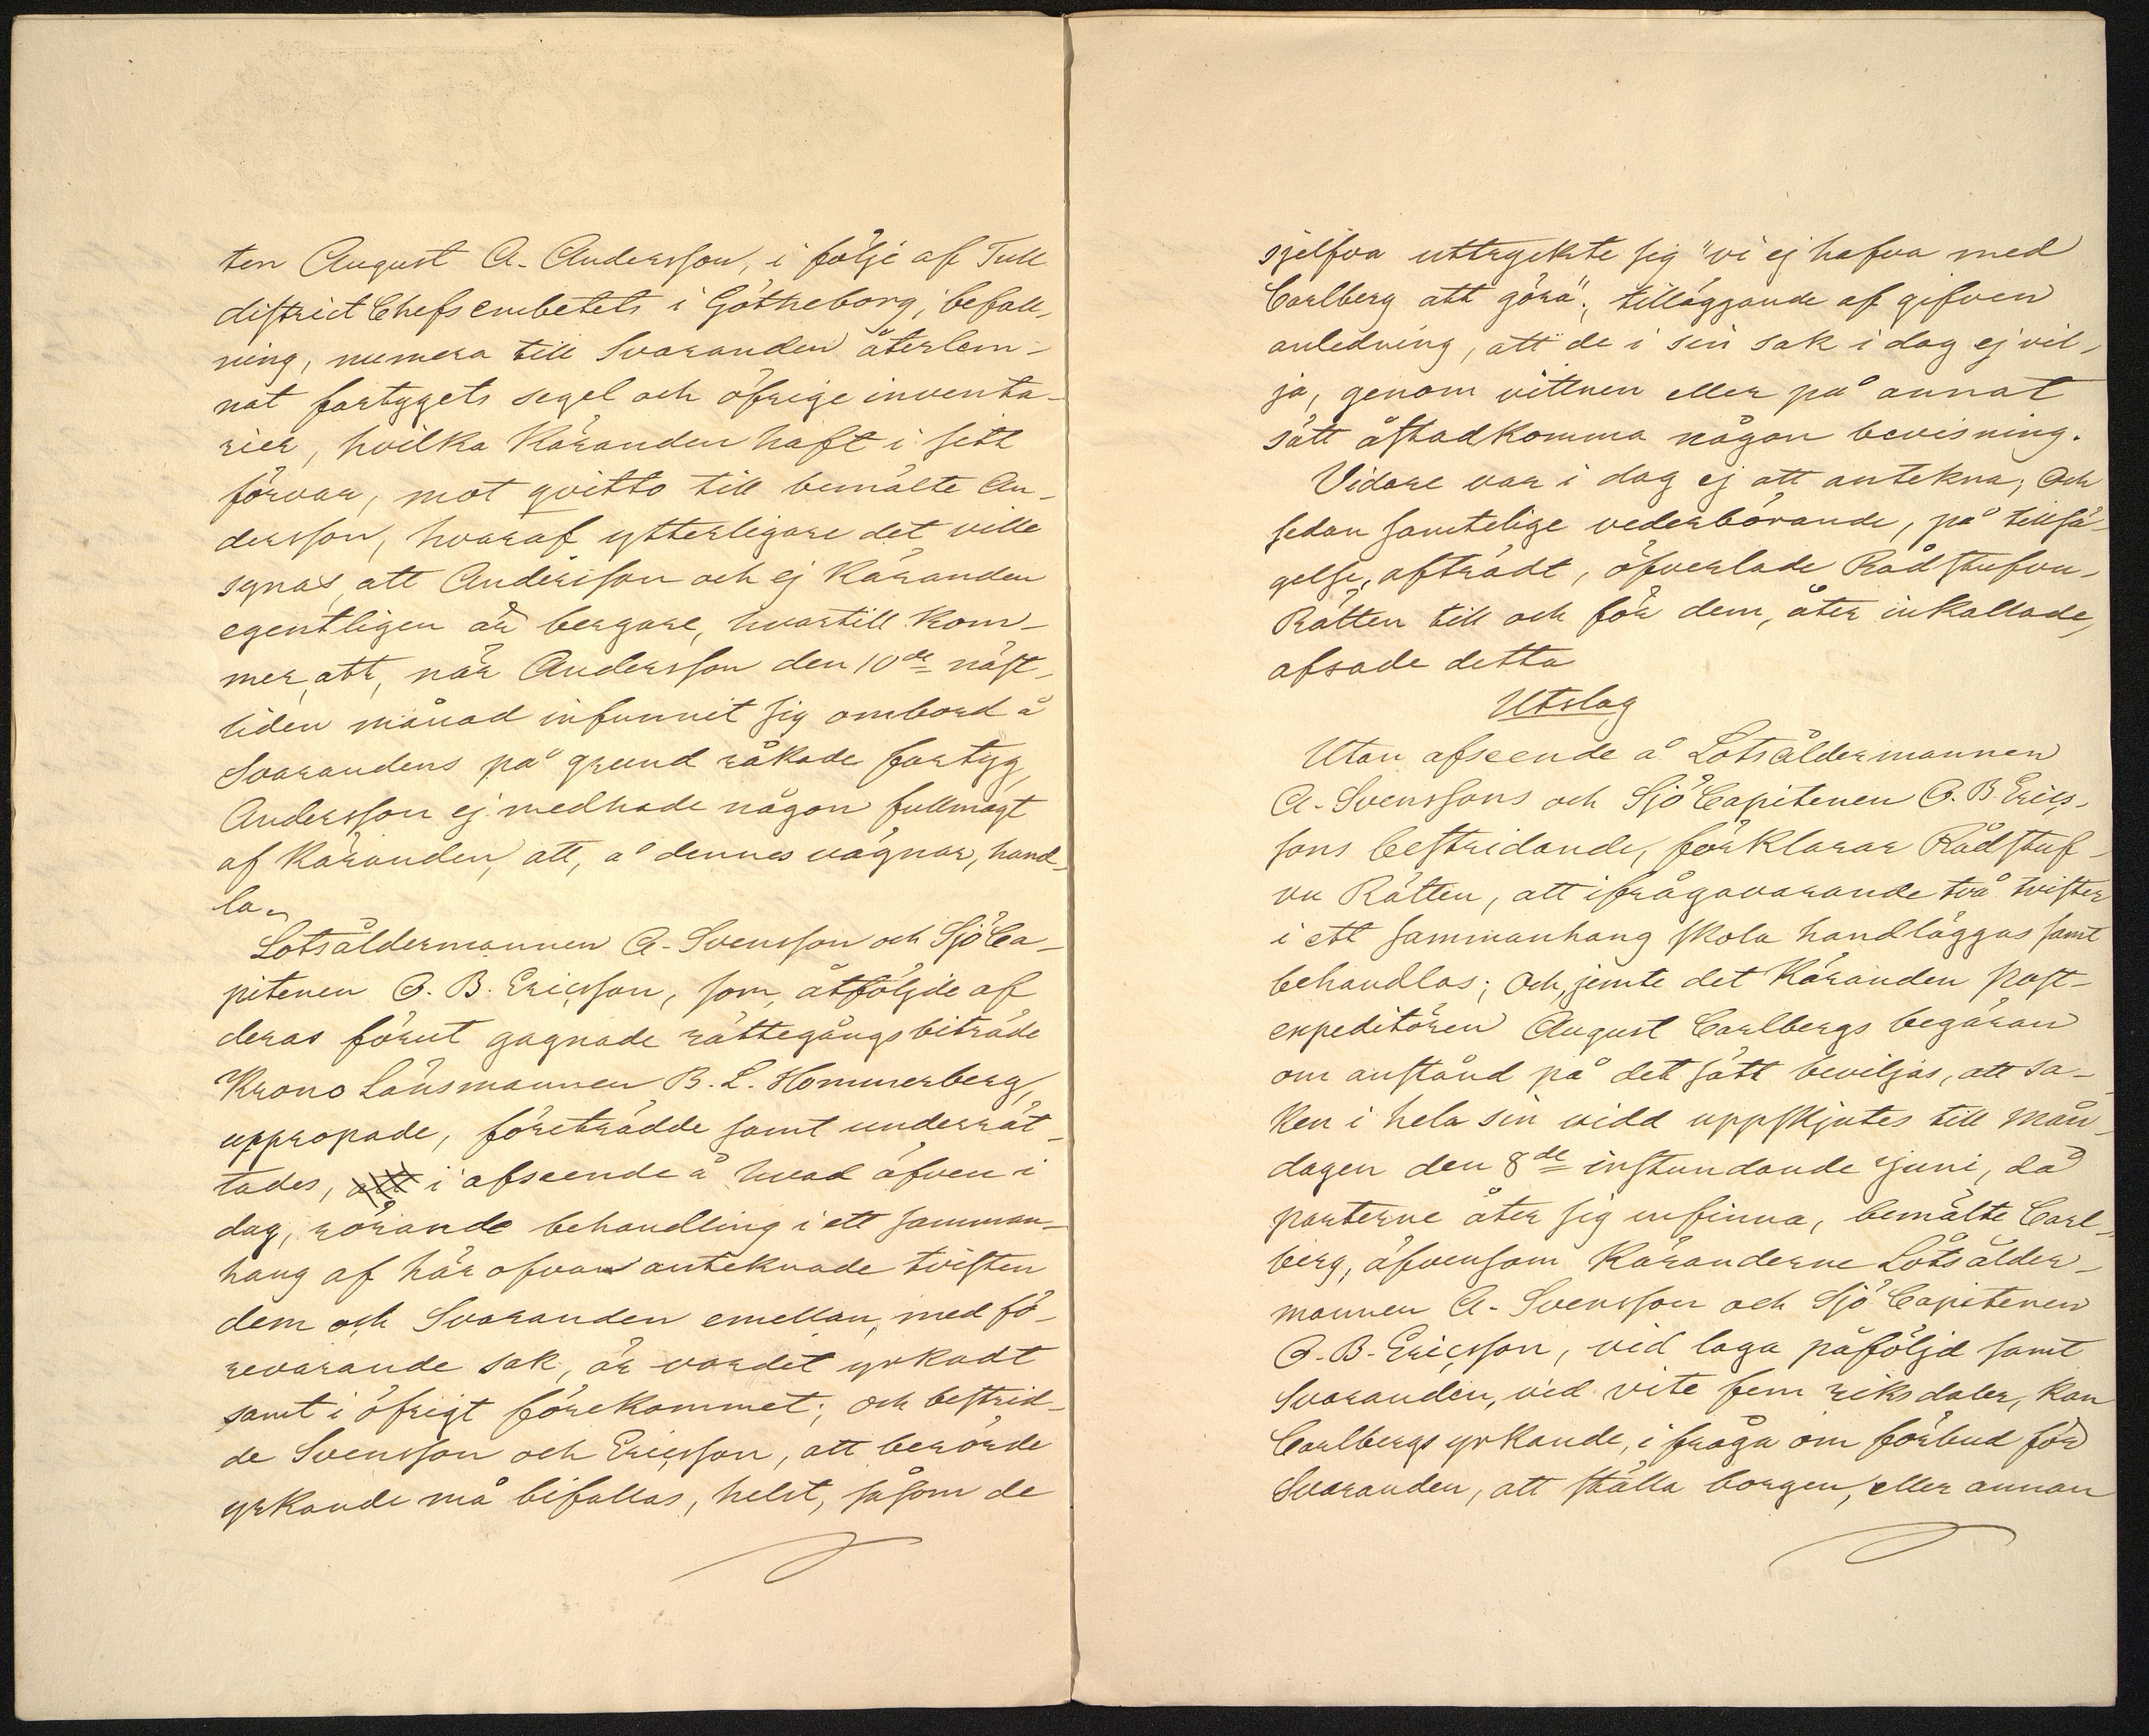 ten August A. Andersson, i följe af Tull
district Chefsembetets i Götheborg, befall,
ning, numera till Svaranden återlem-
nat fartygets segel och öfrige inventa-
rier, hvilka Käranden haft i sitt
förvar, mot qvitto till bemälte An-
dersson, hvaraf ytterligare det ville
synas, att Andersson och ej Käranden
egentligen är bergare, hvartill kom-
mer, att, när Andersson den 10de näst-
liden månad infunnit sig ombord å
Svarandens på grund råkade fartyg,
Andersson ej medhade någon fullmagt
af Käranden, att, å dennes vägnar, hand-
la.
Lotsåldermannen A. Svensson och SjöCa-
pitenen O. B. Ericsson, som, åtföljde af
deras förut gagnade rättegångsbiträde
KronoLänsmannen B. L. Hommerberg,
uppropade, företrädde samt underrät-
tades, att i afseende å hvad äfven i
dag, rörande behandling i ett samman-
hang af här ofvan antecknade tvisten
dem och Svaranden emellan, med fö-
revarande sak, är vordet yrkadt
samt i öfrigt förekommet; och bestrid-
de Svensson och Ericsson, att berörde
yrkande må bifallas, helst, såsom de
sjelfva uttryckte sig "vi ej hafva med
Carlberg att göra"; tilläggande af gifven
anledning, att de i sin sak i dag ej vil-
ja, genom vittnen eller på annat
sätt åstadkomma någon bevisning.
Vidare var i dag ej att antekna; Och
sedan samtelige vederbörande, på tillsä-
gelse, afträdt, öfverlade Rådstufvu-
Rätten till och för dem, åter inkallade,
afsade detta
Utslag
Utan afseende å Lotsåldermannen
A. Svenssons och SjöCapitenen O. B. Erics-
sons bestridande, förklarar Rådstuf-
vu Rätten, att ifrågavarande två tvister
i ett sammanhang skola handläggas samt
behandlas; Och, jemte det Käranden Post-
expeditören August Carlbergs begäran
om anstånd på det sätt beviljas, att sa-
ken i hela sin vidd uppskjutes till Mån-
dagen den 8de instundande Juni, då
parterne åter sig infinna, bemälte Carl-
berg, äfvensom Käranderne Lotsålder-
mannen A. Svensson och SjöCapitenen
O. B. Ericsson, vid laga påföljd samt
Svaranden, vid vite fem riksdaler, kan
Carlbergs yrkande, i fråga om förbud för
Svaranden, att ställa borgen, eller annan